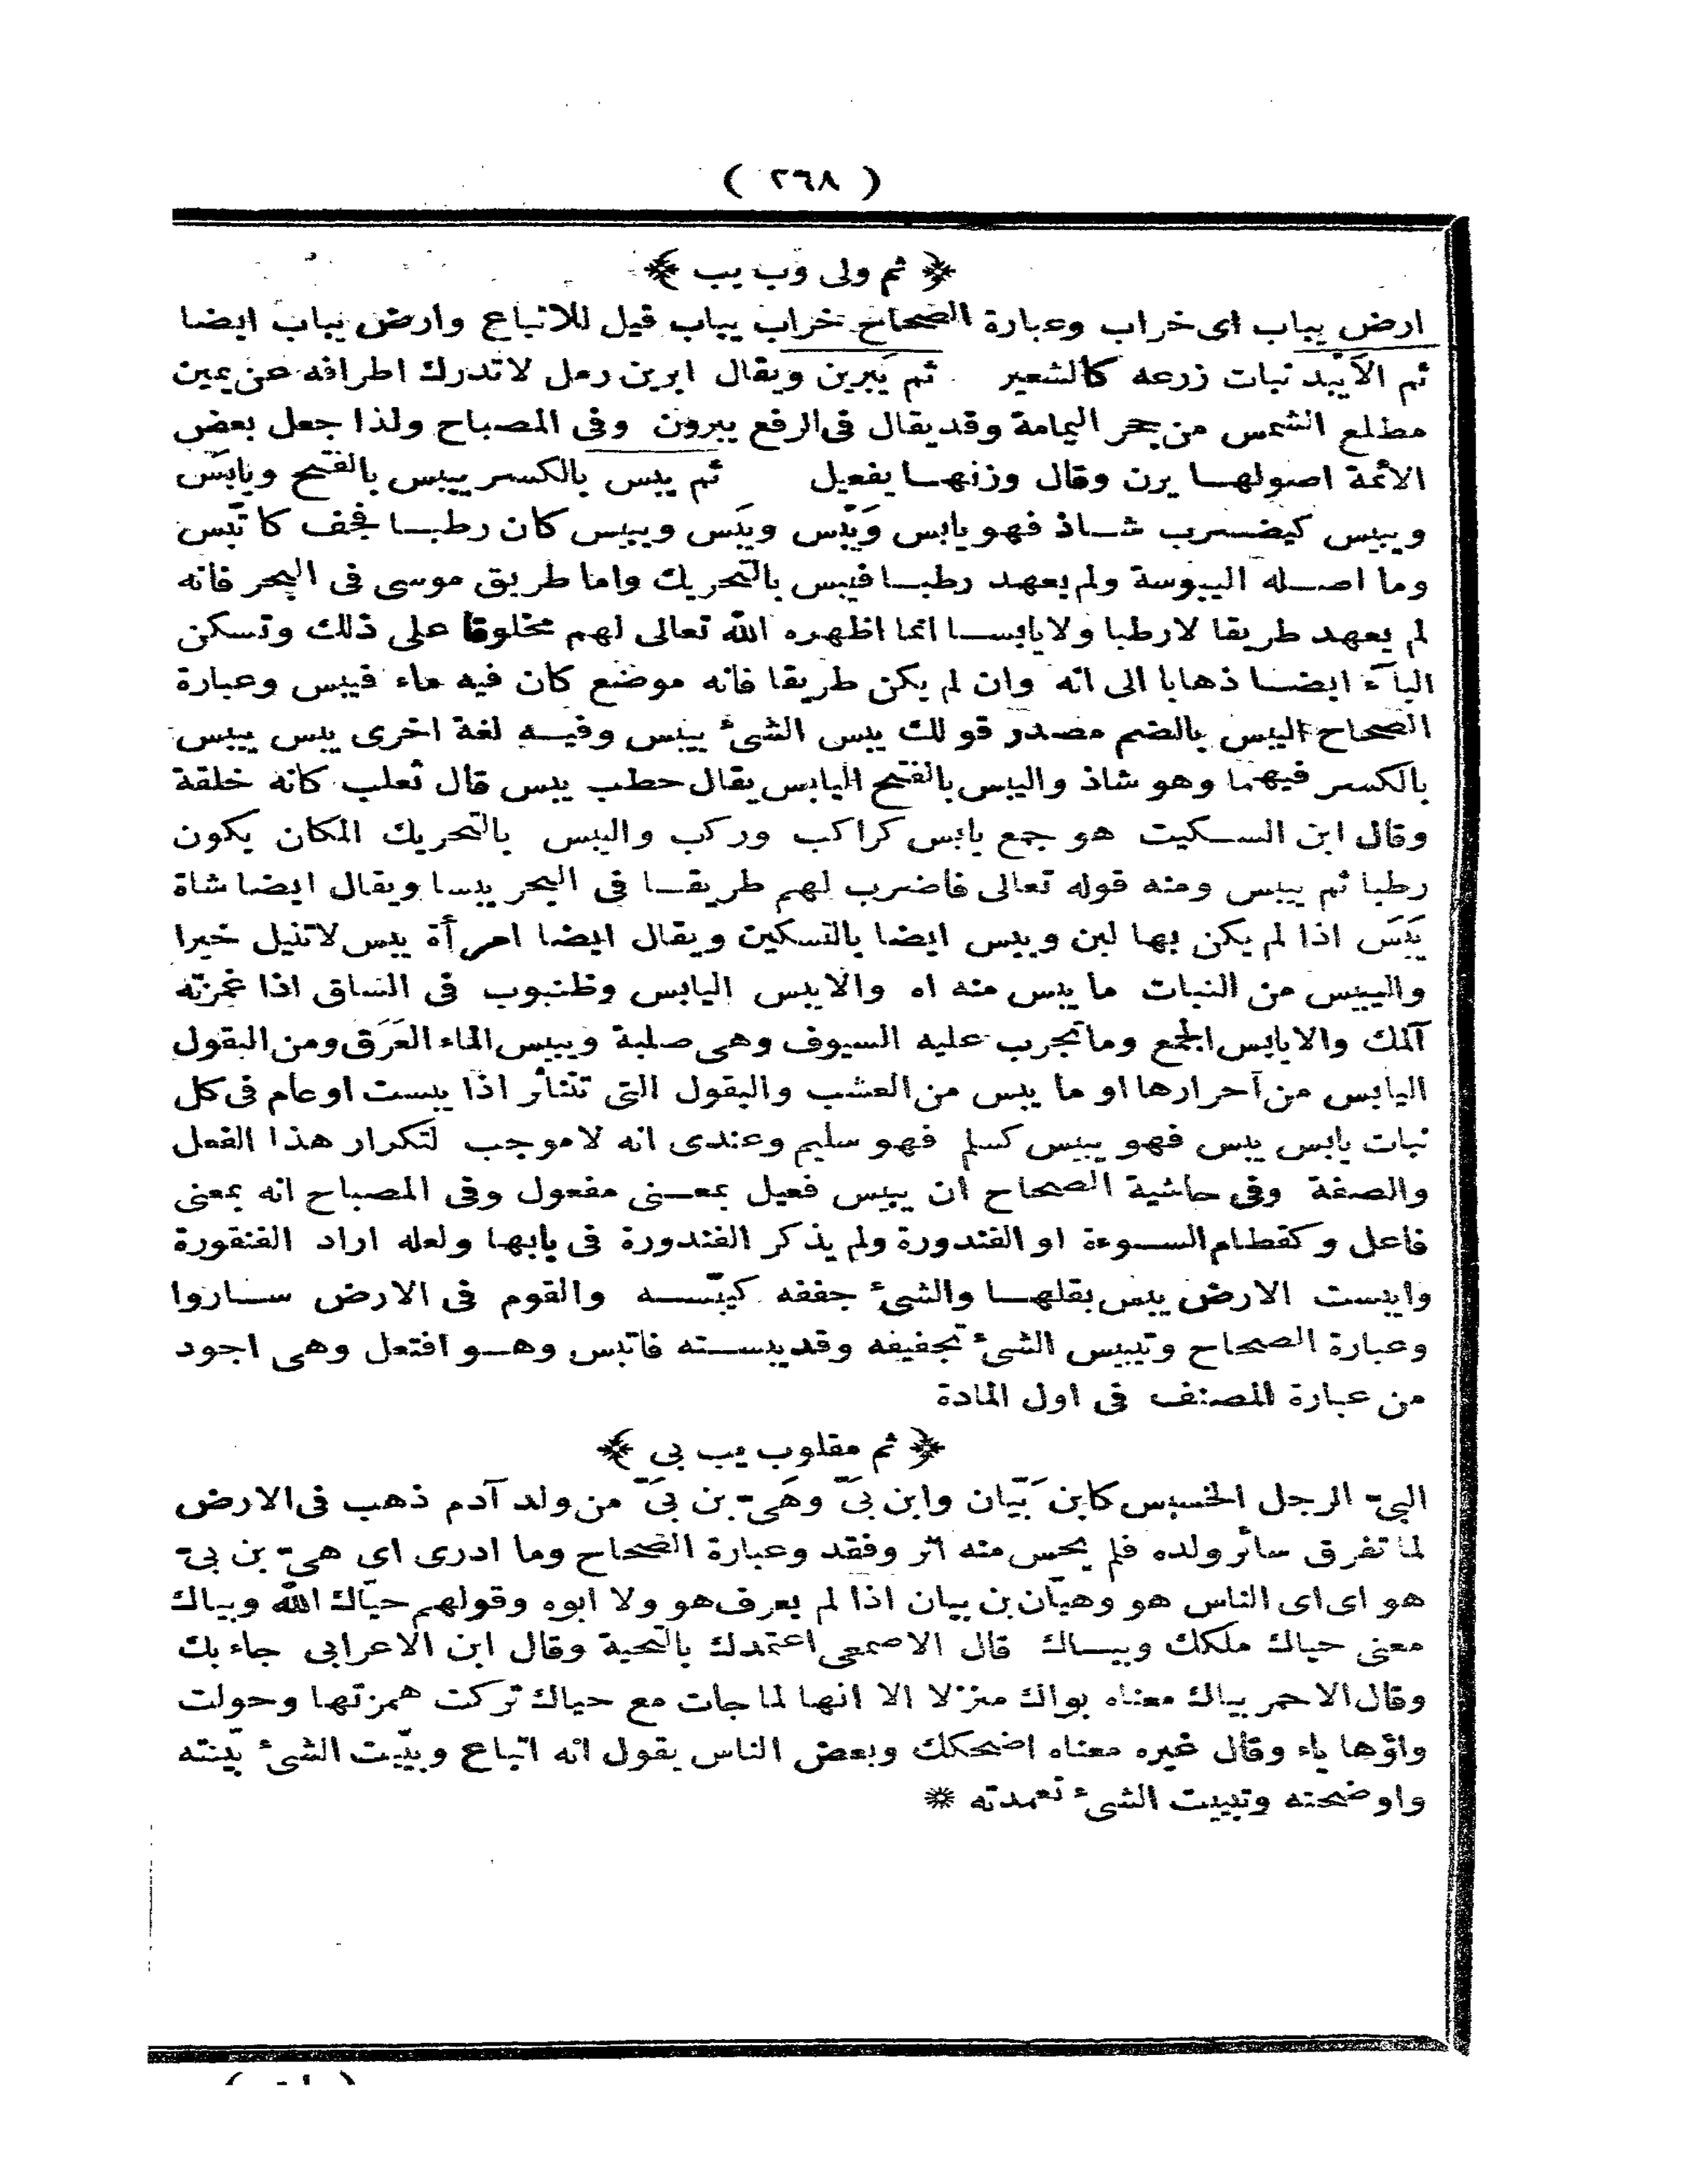 ( ٢٦٨ )
﴿ ثم ولى وب يب ﴾
ارض يباب اى خراب وعبارة الصحاح خراب يباب قيل للاتباع وارض يباب ايضا
ثم الاَيْبد نبات زرعه كالشعير ثم يَبرين ويقال ابرين رمل لاتدرك اطرافه عن يمين
مطلع الشمس من حجر اليمامة وقد يقال فى الرفع يبرون وفى المصباح ولذا جعل بعض
الائمة اصولها يرن وقال وزنها يفعيل ثم يبس بالكسر ييبس بالفتح ويابَس
وييبس كيضرب شاذ فهو يابس ويَبْس ويبَس ويبيس كان رطبا فجف كاتّبس
وما اصله اليبوسة ولم يعهد رطبا فيبس بالتحريك واما طريق موسى فى البحر فانه
لم يعهد طريقا لارطبا ولايابسا انما اظهره الله تعالى لهم مخلوقا على ذلك وتسكن
البآء ايضا ذهابا الى انه وان لم يكن طريقا فانه موضع كان فيه ماء فيبس وعبارة
الصحاح اليبس بالضم مصدر قولك يبس الشئ ييبس وفيه لغة اخرى يبس ييبس
بالكسر فيهما وهو شاذ واليبس بالفتح اليابس يقال حطب يبس قال ثعلب كانه خلقة
وقال ابن السكيت هو جمع يابس كراكب وركب واليبس بالتحريك المكان يكون
رطبا ثم ييبس ومنه قوله تعالى فاضرب لهم طريقا فى البحر يبسا ويقال ايضا شاة
يَبَس اذا لم يكن بها لبن ويبس ايضا بالتسكين ويقال ايضا امرأة يبس لاتنيل خيرا
واليبيس من النبات ما يبس منه اه والايبس اليابس وظنبوب فى الساق اذا غمزته
آلمك والايابس الجمع وما تجرب عليه السيوف وهى صلبة ويبيس الماء العَرَق ومن البقول
اليابس من احرارها او ما يبس من العشب والبقول التى تتناثر اذا يبست او عام فى كل
نبات يابس يبس فهو يبيس كسلم فهو سليم وعندى انه لا موجب لتكرار هذا الفعل
والصفة وفى حاشية الصحاح ان يبيس فعيل بمعنى مفعول وفى المصباح انه بمعنى
فاعل وكقطام السوءة او الفندورة ولم يذكر الفندورة فى بابها ولعله اراد الفنقورة
وايبست الارض يبس بقلها والشئ جففه كيبّسه والقوم فى الارض ساروا
وعبارة الصحاح وتيبيس الشئ تجفيفه وقد يبسته فاتبس وهو افتعل وهى اجود
من عبارة المصنف فى اول المادة
﴿ ثم مقلوب يب بى ﴾
البىّ الرجل الخسيس كابن بَيّان وابن بَىّ وهَىّ بن بَىّ من ولد آدم ذهب فى الارض
لما تفرق سائر ولده فلم يحس منه اثر وفقد وعبارة الصحاح وما ادرى اى هىّ بن بىّ
هو اى اى الناس هو وهيّان بن بيان اذا لم يعرف هو ولا ابوه وقولهم حيّاك الله وبياك
معنى حياك ملكك وبياك قال الاصمعى اعتمدك بالتحية وقال ابن الاعرابى جاء بك
وقال الاحمر بياك معناه بواك منزلا الا انها لما جات مع حياك تركت همزتها وحولت
واوها ياء وقال غيره معناه اضحكك وبعض الناس يقول انه اتباع وبيّيت الشئ بيّنته
واوضحته وتبييت الشئ تعمدته ❊